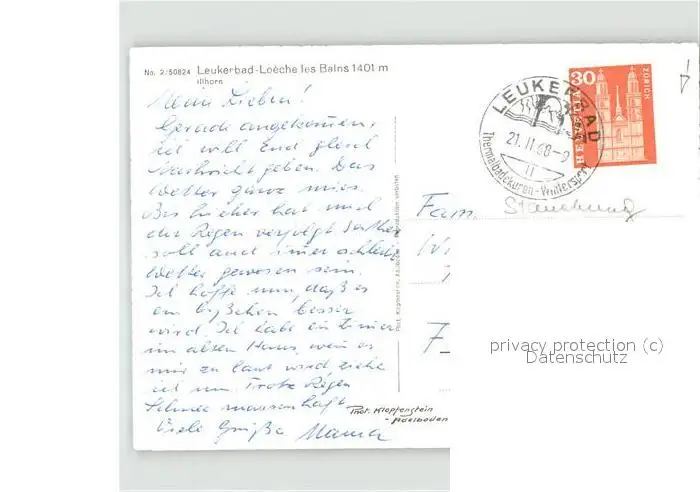 No. 2/50824 Leukerbad-Loèche les Bains 1401 m
Illhorn
Meine Lieben!
Gerade angekommen,
ich will Euch gleich
Nachricht geben. Das
Wetter ganz mies.
Bis hieher hat mich
der Regen verfolgt
soll auch immer schlecht
Wetter gewesen sein.
Ich hoffe nun, daß es
ein bißchen besser
wird. Ich habe ein Zimmer
im alten Haus, wenn es
mir zu laut wird, ziehe
ich um. Trotz Regen
Schnee massenhaft
Viele Grüße Mama
Phot. Klopfenstein
- Adelboden
LEUKERBAD
21. II 68 - 9
Thermalbadekuren - Wintersport
30
HELVETIA
ZÜRICH
Fam.
privacy protection (c)
Datenschutz